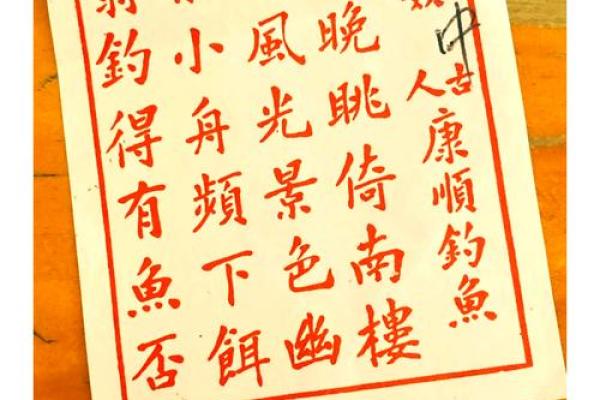 中
古人康順釣魚
晚眺倚南樓
風光景色幽
小舟頻下餌
翁釣得有魚否